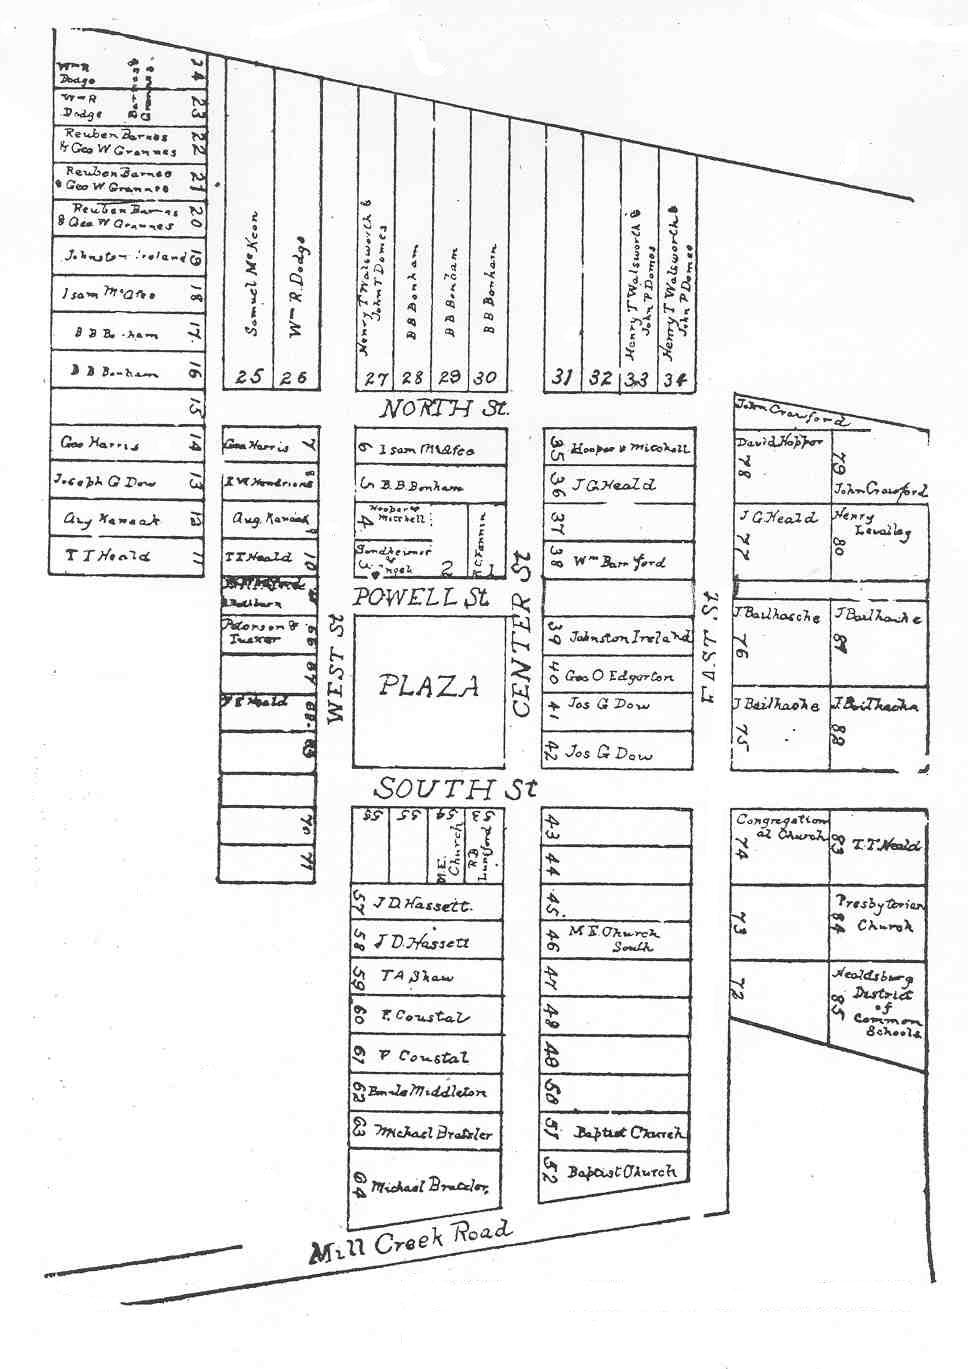 Wm R
Dodge
24
Wm R
Dodge
23
Barnes &
Grannes
Reuben Barnes
& Geo W Grannes
22
Reuben Barnes
& Geo W Grannes
21
Reuben Barnes
& Geo W Grannes
20
Johnston Ireland
19
Isam McAfee
18
B B Bonham
17
B B Bonham
16
15
Geo Harris
14
Joseph G Dow
13
12
T T Heald
11
Samuel McKeon
25
Wm R. Dodge
26
Henry T Walsworth &
John T Domes
27
B B Bonham
28
B B Bonham
29
B B Bonham
30
31
32
Henry T Walsworth &
John P Domes
33
Henry T Walsworth &
John P Domes
34
NORTH St.
Geo Harris
7
8
Aug. Kanaak
9
T T Heald
10
Peterson &
Tucker
66
67
Heald
68
69
70
71
6 Isam McAfee
5 B. B. Bonham
Hooper &
Mitchell
4
Sondheimer
&
3
2
1
POWELL St
WEST St
PLAZA
CENTER St
SOUTH St
35 Hooper & Mitchell
36 J G Heald
37
38 Wm Barnford
39 Johnston Ireland
40 Geo O Edgerton
41 Jos G Dow
42 Jos G Dow
EAST St
John Crawford
David Hopper
78
79
John Crawford
J G Heald
77
Henry
80
J Bailhache
76
J Bailhache
J Bailhache
75
J Bailhache
82
55
M. E.
Church
54
R B
Lunsford
53
57 J D. Hassett.
58 J D. Hassett
59 T A Shaw
60 P. Coustal
61 P Coustal
62 Middleton
63 Michael Bratzler
64 Michael Bratzler,
43
44
45
46 M E. Church
South
47
48
49
50
51 Baptist Church
52 Baptist Church
Congregation
al Church
74
83 T. T. Heald
73
Presbyterian
84 Church
72
Healdsburg
District
of
Common
Schools.
85
Mill Creek Road